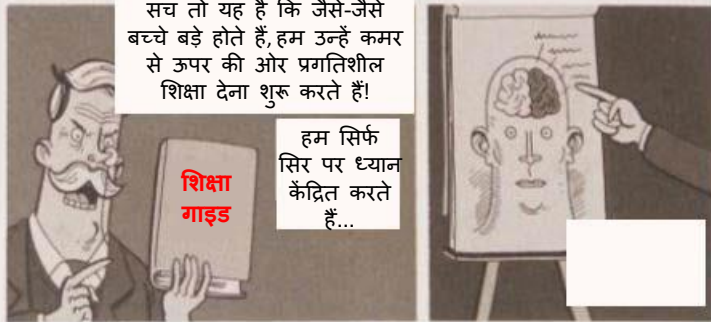 सच तो यह है कि जैसे-जैसे
बच्चे बड़े होते हैं, हम उन्हें कमर
से ऊपर की ओर प्रगतिशील
शिक्षा देना शुरू करते हैं!
हम सिर्फ
सिर पर ध्यान
केंद्रित करते
हैं...
शिक्षा
गाइड